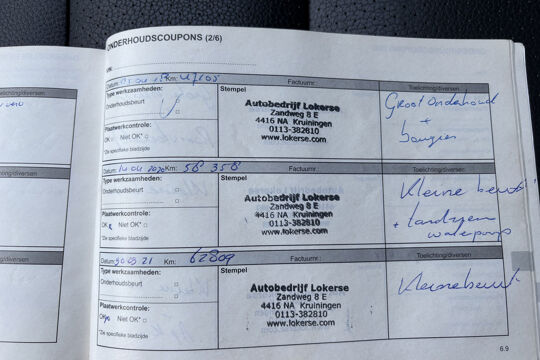 ONDERHOUDSCOUPONS (2/6)
Datum: Km: Factuurnr.: Toelichting/diversen
Type werkzaamheden:
Onderhoudsbeurt
Plaatwerkcontrole:
OK Niet OK*
*Zie specifieke bladzijde
Stempel
Autobedrijf Lokerse
Zandweg 8 E
4416 NA Kruiningen
0113-382810
www.lokerse.com
Groot onderhoud
+
bougies
Datum: 14 04 2020 Km: 58 358 Factuurnr.: Toelichting/diversen
Type werkzaamheden:
Onderhoudsbeurt
Plaatwerkcontrole:
OK Niet OK*
*Zie specifieke bladzijde
Stempel
Autobedrijf Lokerse
Zandweg 8 E
4416 NA Kruiningen
0113-382810
www.lokerse.com
Kleine beurt
+
waterpomp
Datum: 21 Km: 62809 Factuurnr.: Toelichting/diversen
Type werkzaamheden:
Onderhoudsbeurt
Plaatwerkcontrole:
Niet OK*
*Zie specifieke bladzijde
Stempel
Autobedrijf Lokerse
Zandweg 8 E
4416 NA Kruiningen
0113-382810
www.lokerse.com
Kleine beurt
6.9